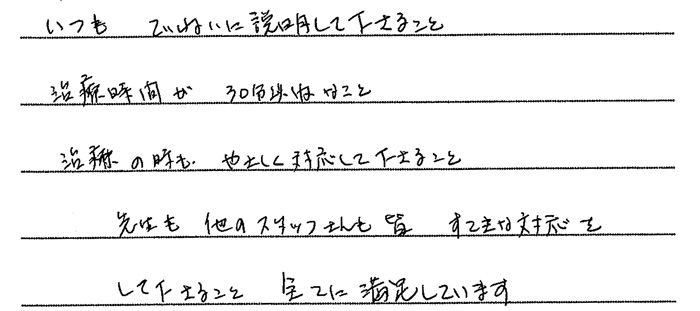 いつも ていねいに説明して下さること
治療時間が 30分以内なこと
治療の時も やさしく対応して下さること
先生も 他のスタッフさんも皆 すてきな対応を
して下さること 全てに満足しています